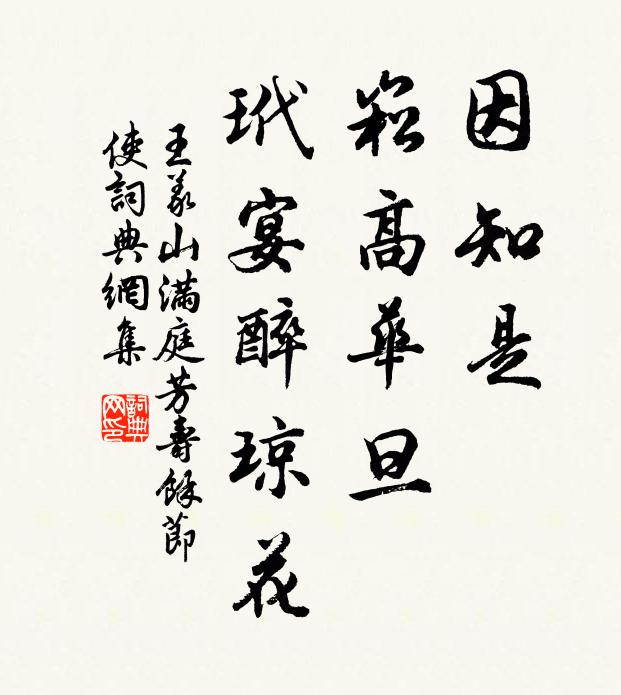 因知是
崧高華旦
玳宴醉琼花
王義山滿庭芳壽餘節
使詞典網集
詞典
网印